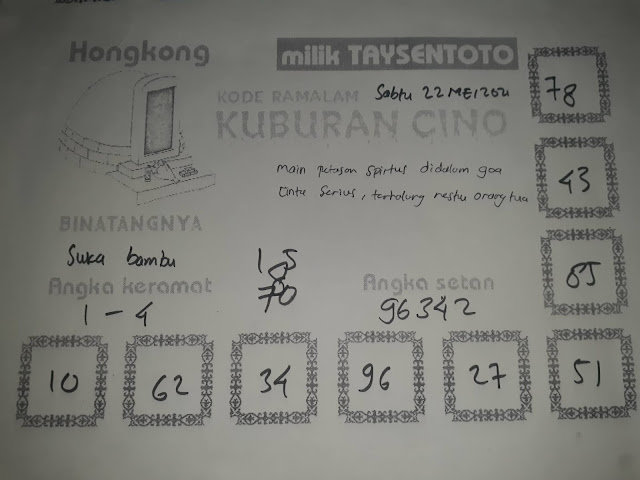 Hongkong
milik TAYSENTOTO
KODE RAMALAM
Sabtu 22 MEI 2021
KUBURAN CINO
78
main petasan spirtus didalam goa
Cinta Serius, terhalang restu orang tua
43
BINATANGNYA
Suka bambu
85
Angka keramat
1 - 4
1 5
8
70
Angka setan
96342
10
62
34
96
27
51